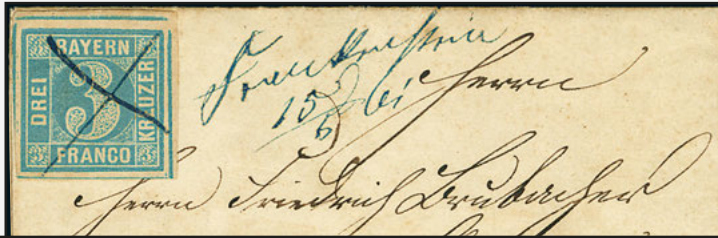 BAYERN
DREI
3
KREUZER
FRANCO
Frankenstein
15/6
Herrn
Herrn Friedrich Brubacher